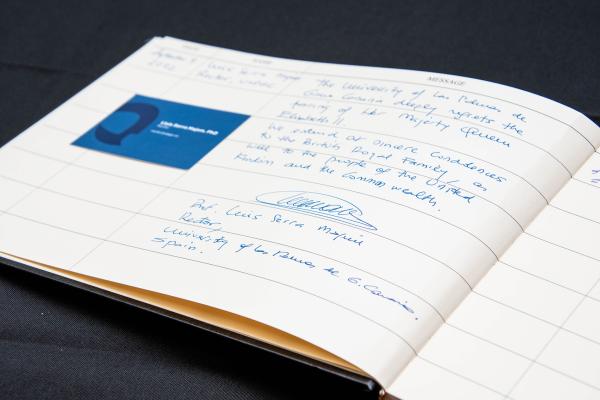 NAME
MESSAGE
September 9
2022
Luis Serra Majem
Rector, ULPGC
The University of Las Palmas de
Gran Canaria deeply regrets the
passing of Her Majesty Queen
Elizabeth II.
We extend our sincere condolences
to the British Royal Family, as
well to the people of the United
Kindom and the Commonwealth.
Lluis Serra Majem, PhD
Prof. Luis Serra Majem
Rector,
University of Las Palmas de G. Canaria.
Spain.